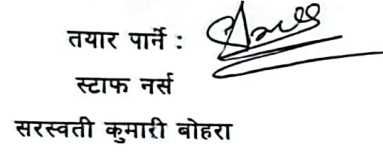 तयार पार्ने :
स्टाफ नर्स
सरस्वती कुमारी बोहरा